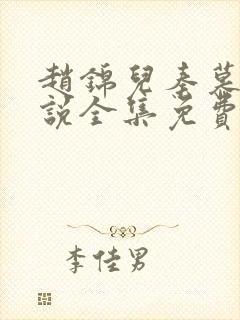 趙錦兒秦慕
說全集免費
李佳男